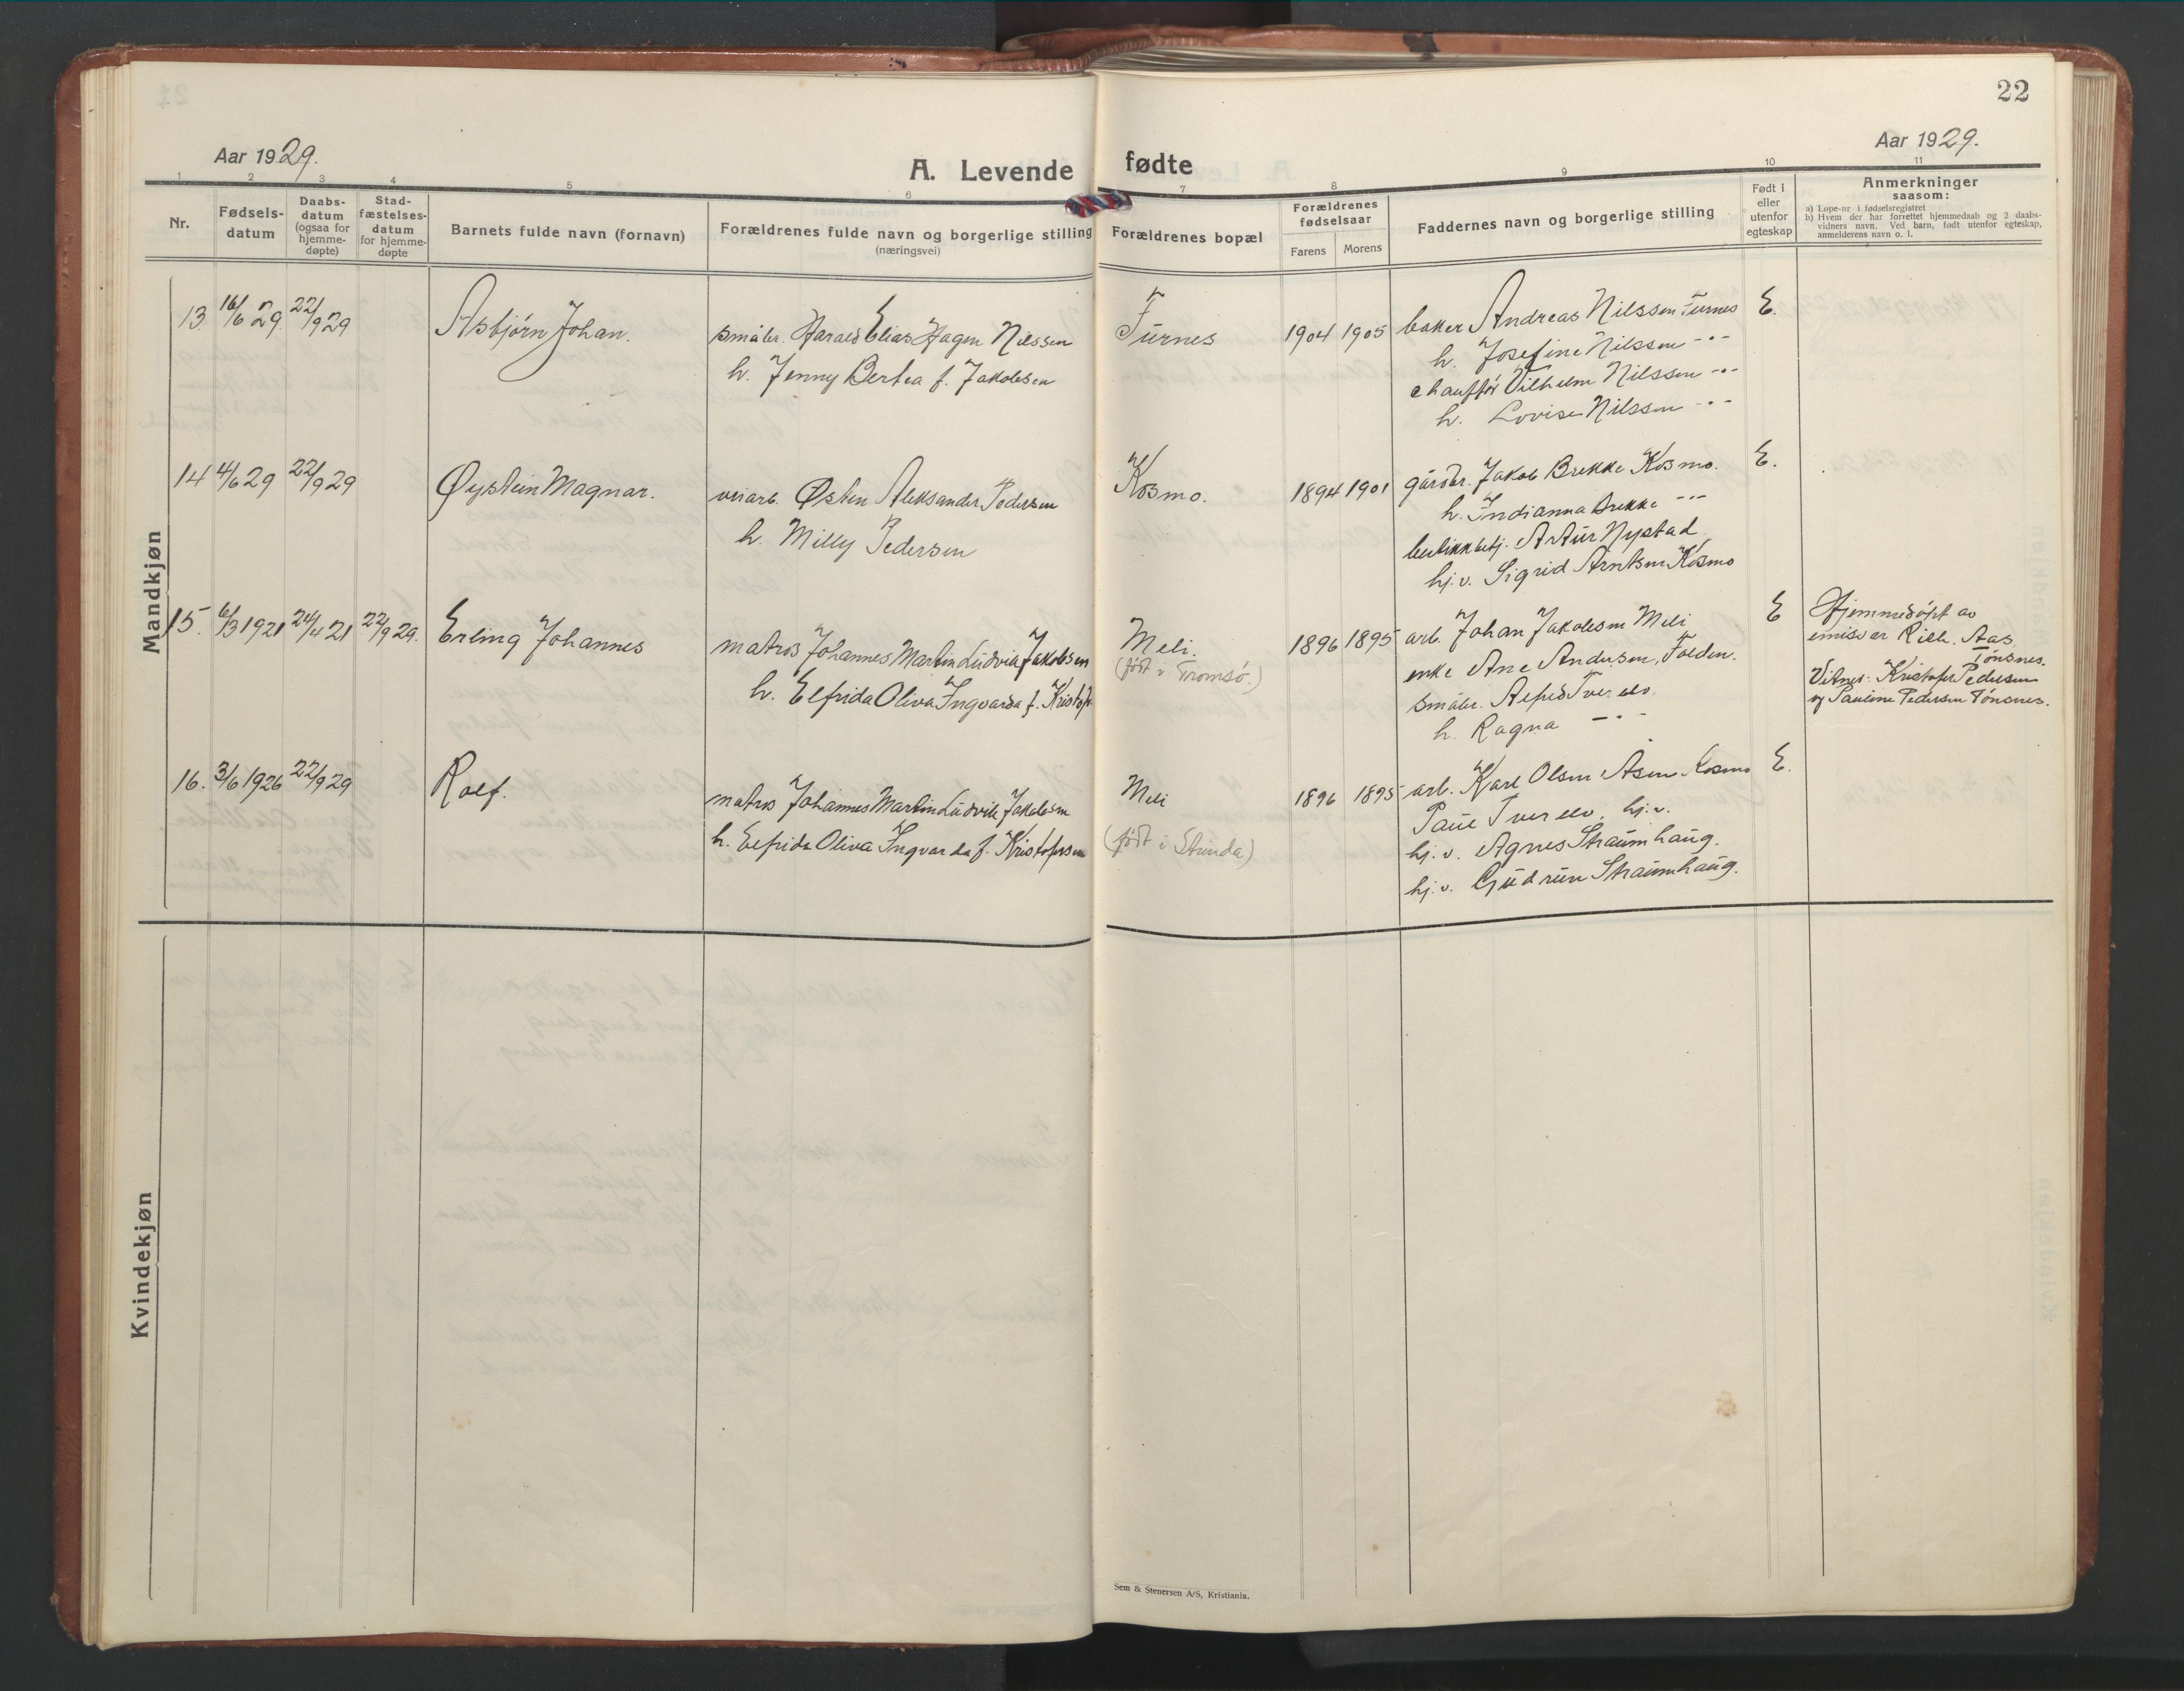 22
Aar 1929.
Aar 1929.
A. Levende fødte
1 2 3 4 5 6 7 8 9 10 11
Nr.
Fødsels-
datum
Daabs-
datum
(ogsaa for
hjemme-
døpte)
Stad-
fæstelses-
datum
for hjemme-
døpte
Barnets fulde navn (fornavn)
Forældrenes fulde navn og borgerlige stilling
(næringsvei)
Forældrenes bopæl
Forældrenes
fødselsaar
Farens Morens
Faddernes navn og borgerlige stilling
Født i
eller
utenfor
egteskap
Anmerkninger
saasom:
a) Løpe-nr i fødselsregistret
b) Hvem der har forrettet hjemmedaab og 2 daabs-
vidners navn. Ved barn, født utenfor egteskap,
anmelderens navn o. l.
Mandkjøn
13. 16/6 29. 22/9 29 Asbjørn Johan.
småbr. Harald Elias Hagen Nilssen
h. Jenny Bertea f. Jakobsen
Furnes 1904 1905
baker Andreas Nilssen Furnes E.
h. Josefine Nilssen -"-
chauffør Vilhelm Nilssen -"-
h. Lovise Nilssen -"-
14 4/6 29 22/9 29 Øystein Magnar.
veiarb. Østen Aleksander Pedersen
h. Milly Pedersen
Kosmo. 1894 1901
gårdbr. Jakob Brekke Kosmo. E.
h. Indianna Brekke -"-
butikkbetj. Artur Nystad
hj.v. Sigrid Arntsen Kosmo
15. 6/3 1921 24/4 21 22/9 29. Erling Johannes
matros Johannes Martin Ludvik Jakobsen
h. Elfrida Oliva Ingvarda f. Kristofs.
Meli.
(født i Tromsø.)
1896 1895
arb. Johan Jakobsen Meli E
enke Ane Andersen, Folden.
småbr. Alfred Tverelv.
h. Ragna -"-
Hjemmedøpt av
emisær Rikh. Aas
Tønsnes.
Vitner: Kristofer Pedersen
og Pauline Pedersen Tønsnes.
16. 3/6 1926 22/9 29 Rolf.
matros Johannes Martin Ludvik Jakobsen
h. Elfrida Oliva Ingvarda f. Kristofersen
Meli
(født i Strinda)
1896 1895
arb. Karl Olsen Åsen Kosmo E.
Paul Tverelv. hj.v.
hj.v. Agnes Straumhaug.
hj.v. Gudrun Straumhaug.
Kvindekjøn
Sem & Stenersen A/S, Kristiania.